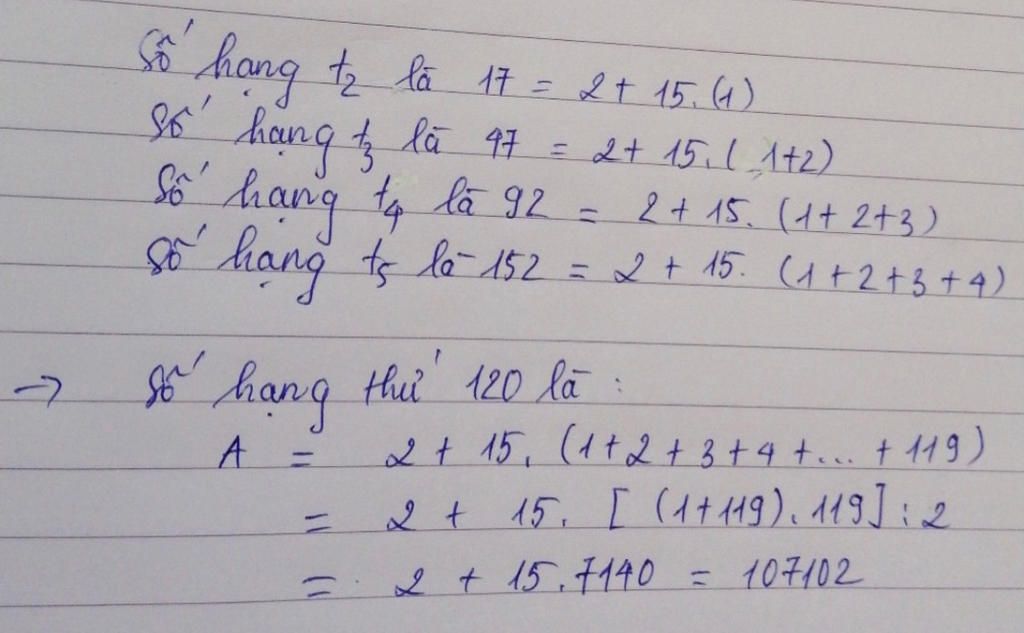 Số hạng t2 là 17 = 2 + 15.(1)
Số hạng t3 là 47 = 2 + 15.(1+2)
Số hạng t4 là 92 = 2 + 15. (1+2+3)
Số hạng t5 là 152 = 2 + 15. (1+2+3+4)
→ Số hạng thứ 120 là :
A = 2 + 15. (1+2+3+4+... +119)
= 2 + 15. [ (1+119).119] : 2
= 2 + 15.7140 = 107102